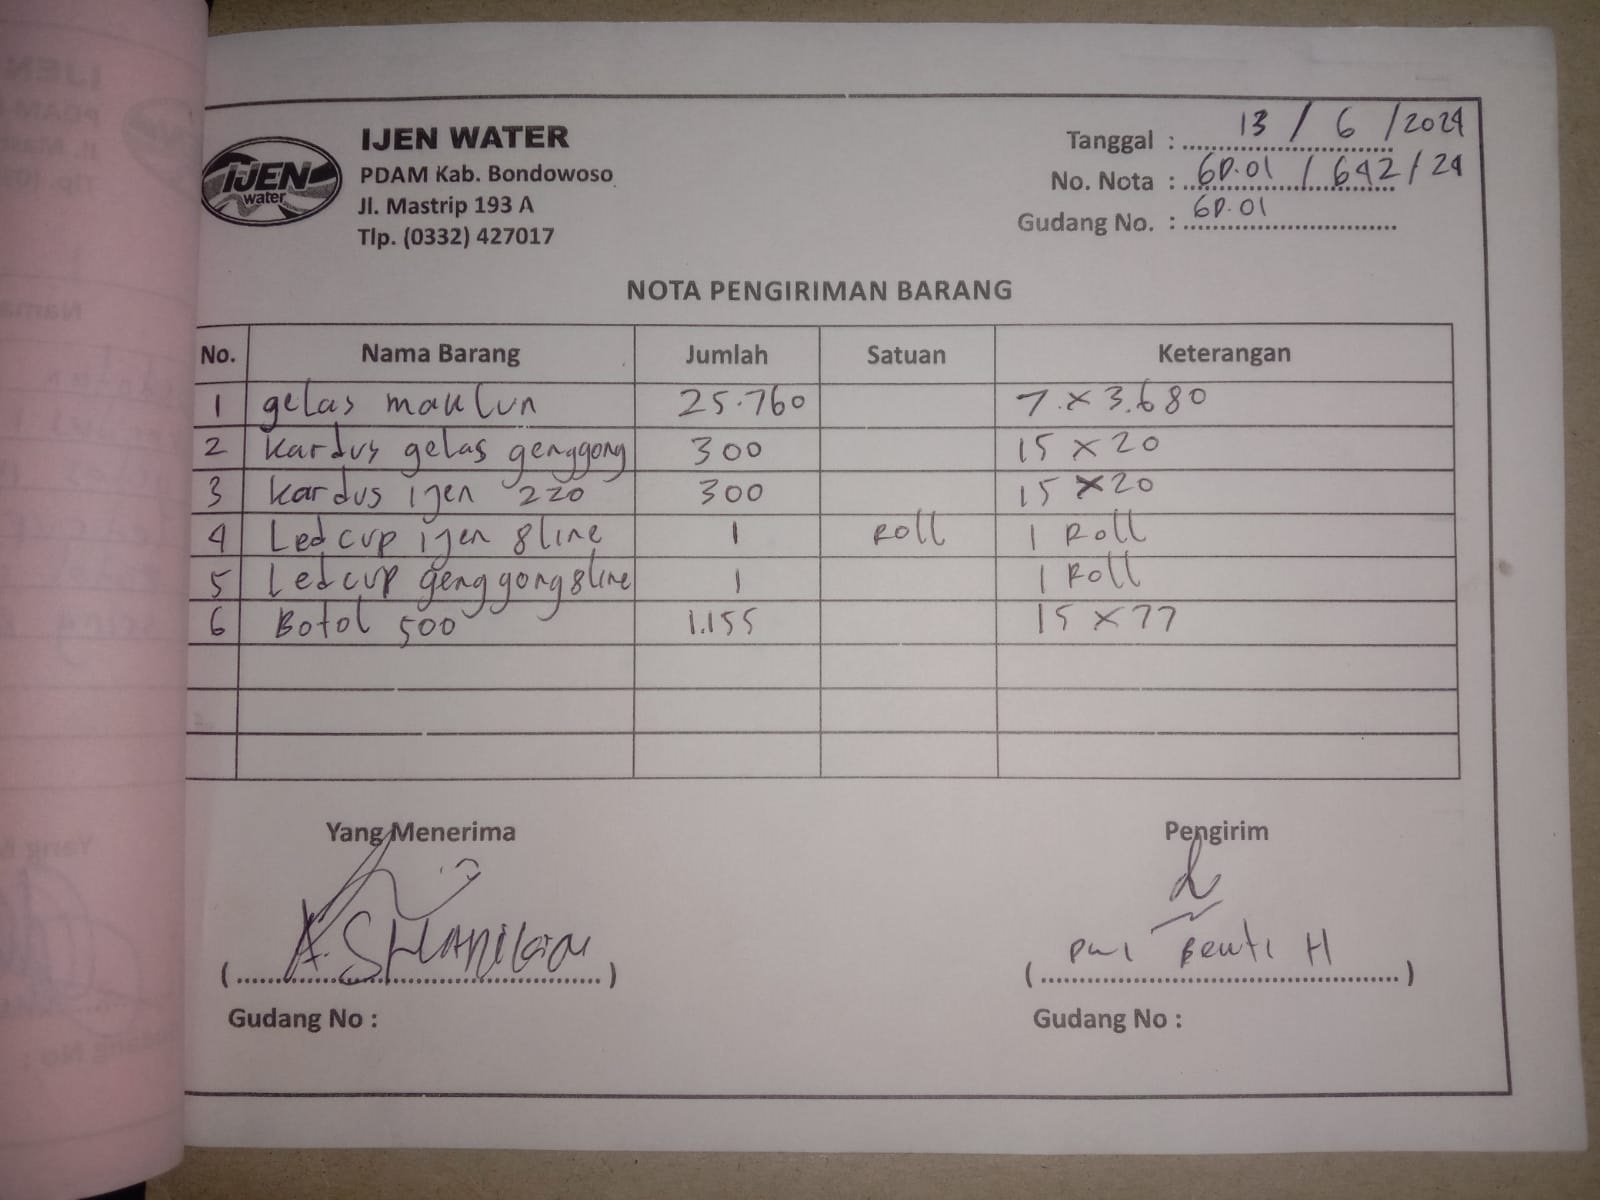 IJEN WATER
PDAM Kab. Bondowoso
Jl. Mastrip 193 A
Tlp. (0332) 427017
IJEN
water
Tanggal : 13 / 6 / 2024
No. Nota : GD.01 / 642 / 24
Gudang No. : GD.01
NOTA PENGIRIMAN BARANG
No. Nama Barang Jumlah Satuan Keterangan
1 gelas maklun 25.760 7 x 3.680
2 Kardus gelas genggong 300 15 x 20
3 Kardus ijen 220 300 15 x 20
4 Led cup ijen 8 line 1 Roll 1 Roll
5 Led cup genggong 8 line 1 1 Roll
6 Botol 500 1.155 15 x 77
Yang Menerima Pengirim
Gudang No : Gudang No :